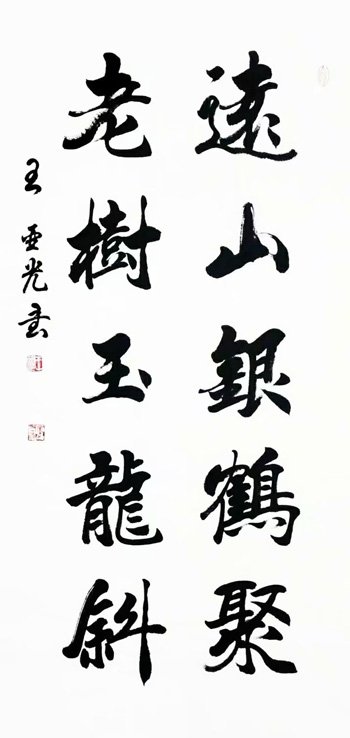 遠山銀鶴聚
老樹玉龍斜
王亞光書